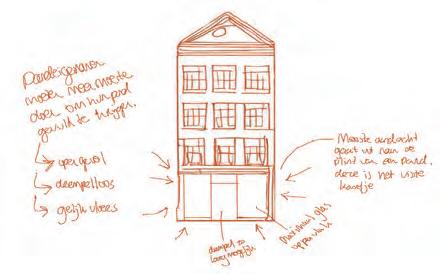 Pandeigenaren
moeten meer moeite
doen om hun pand
gevuld te krijgen.
drempelloos
gelijkvloers
drempel zo
laag mogelijk
maximaal glas
oppervlak
Meeste aandacht
gaat uit naar de
plint van een pand.
deze is het